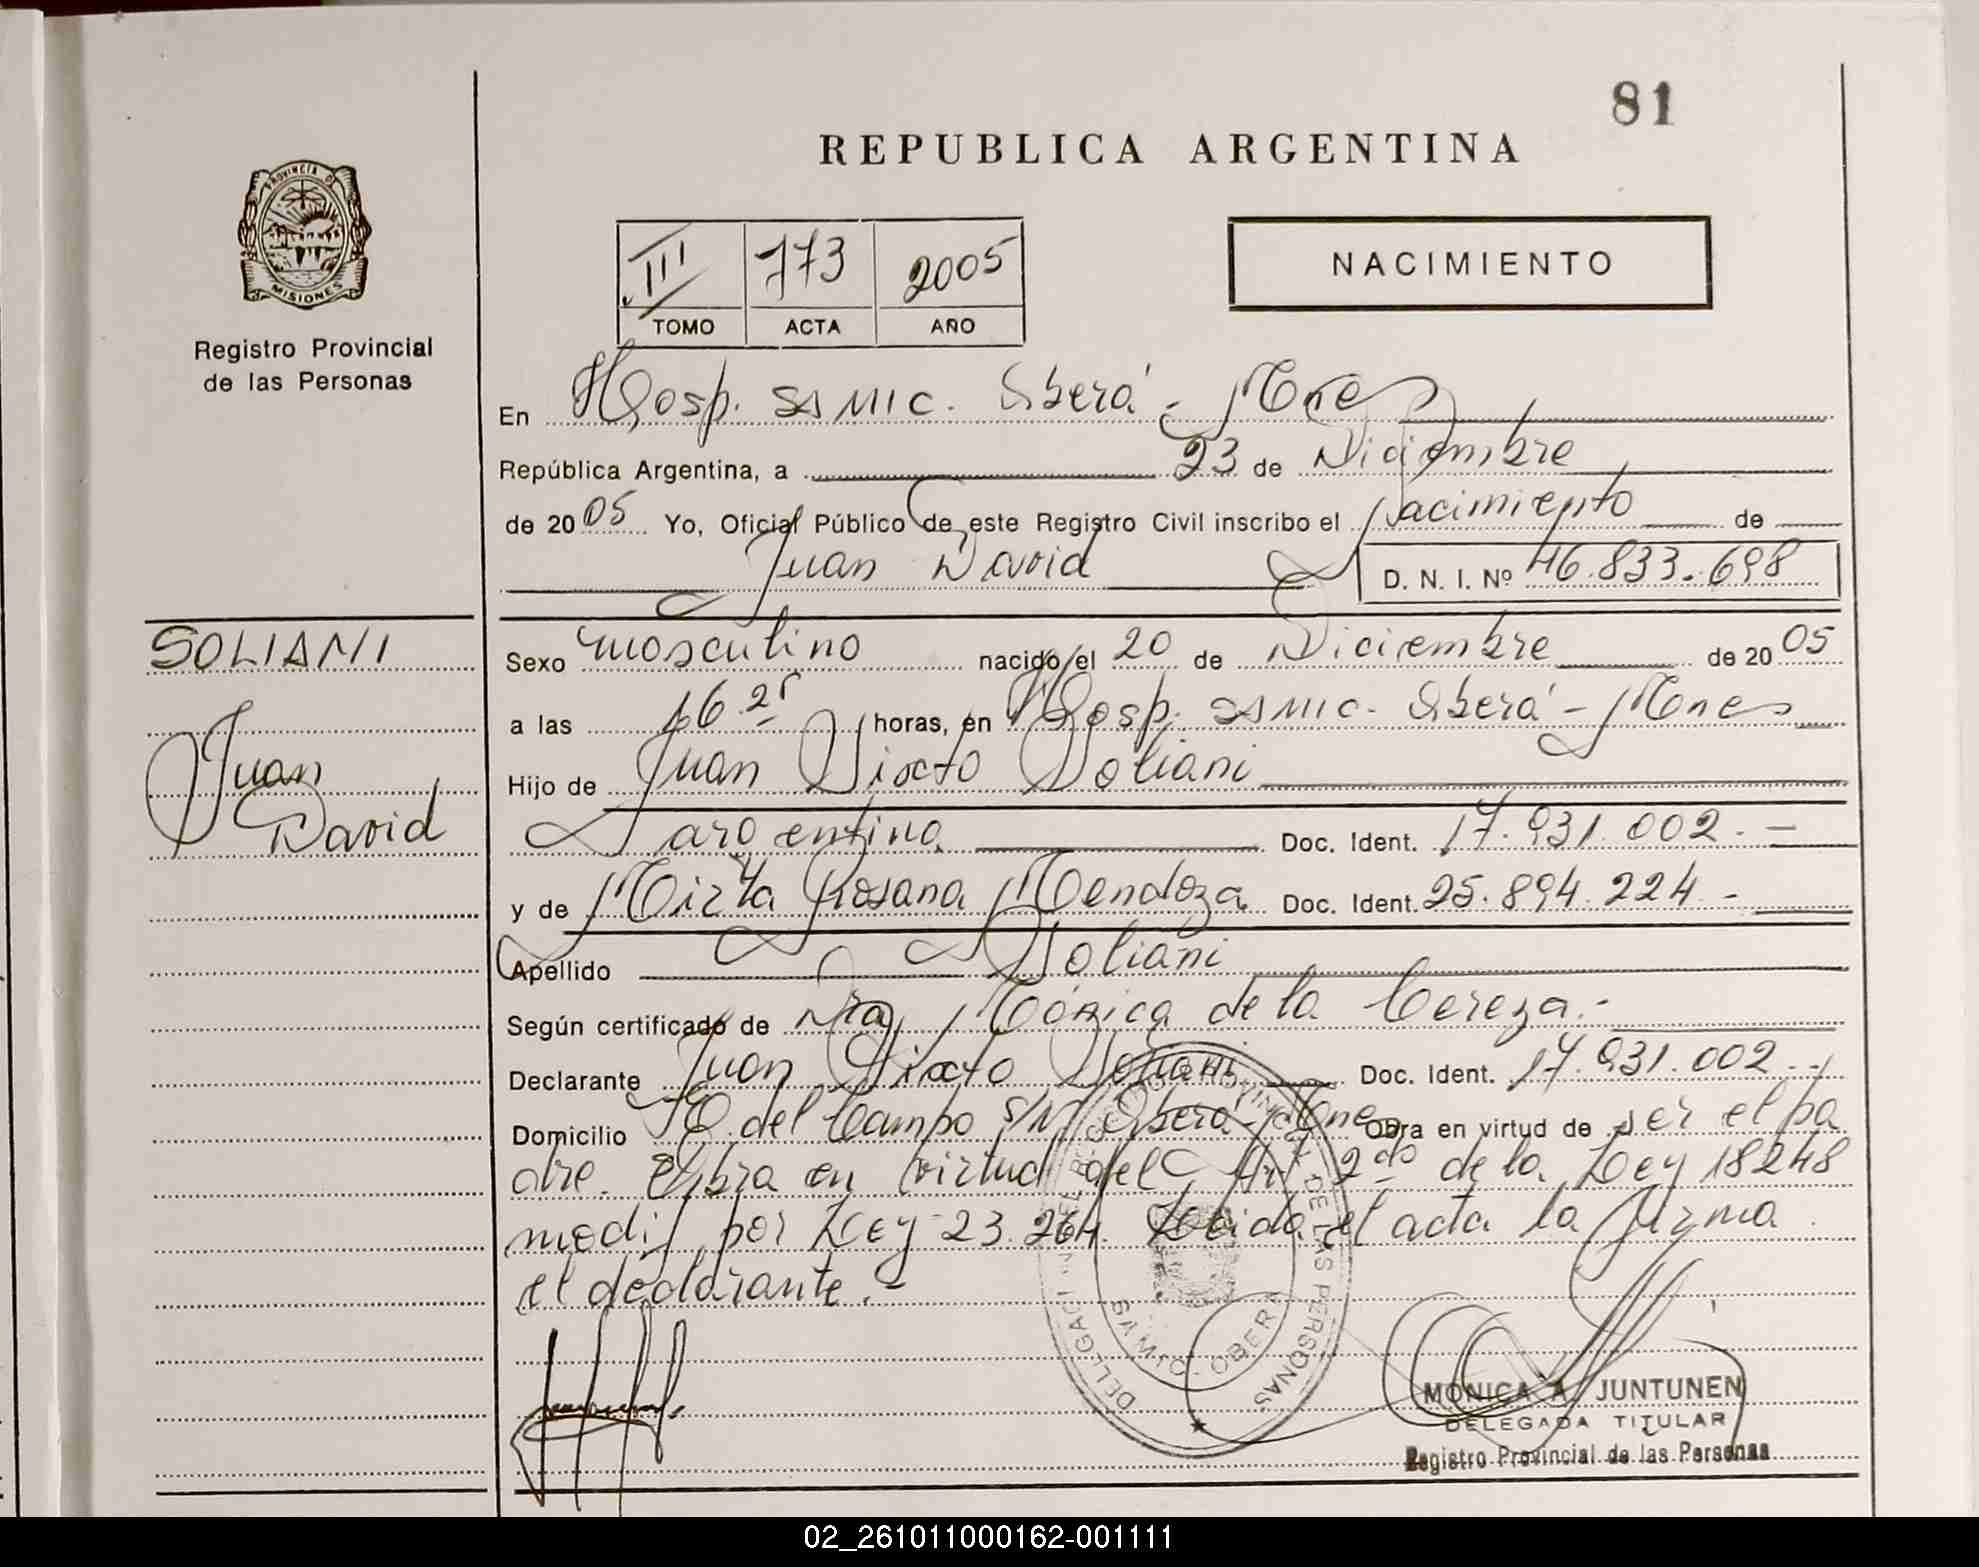 81
REPUBLICA ARGENTINA
PROVINCIA DE
MISIONES
Registro Provincial
de las Personas
III 773 2005
TOMO ACTA AÑO
NACIMIENTO
En Hosp. SAMIC. Oberá - Mnes
República Argentina, a 23 de Diciembre
de 2005 Yo, Oficial Público de este Registro Civil inscribo el Nacimiento de
Juan David D. N. I. Nº 46.833.698
SOLIANI
Juan
David
Sexo masculino nacido el 20 de Diciembre de 2005
a las 16 25 horas, en Hosp. SAMIC. Oberá - Mnes
Hijo de Juan Sixto Soliani
argentino Doc. Ident. 17.931.002.-
y de Mirta Rosana Mendoza Doc. Ident. 25.894.224.-
Apellido Soliani
Según certificado de Dra Mónica de la Cereza.-
Declarante Juan Sixto Soliani Doc. Ident. 17.931.002.-
Domicilio Bº del Campo s/N Oberá - Mnes Obra en virtud de ser el pa
dre. Obra en virtud del Art 2do de la Ley 18248
modif por Ley 23.264. Leida el acta la firma
el declarante.-
DE LAS PERSONAS
OBERA
MONICA A. JUNTUNEN
DELEGADA TITULAR
Registro Provincial de las Personas
02_261011000162-001111